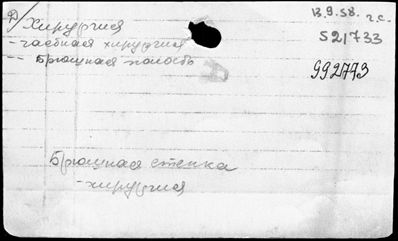 Д) Хирургия
- частная хирургия
-- Брюшная полость
13.9.58. г.с.
521733
992773
Брюшная стенка
- хирургия